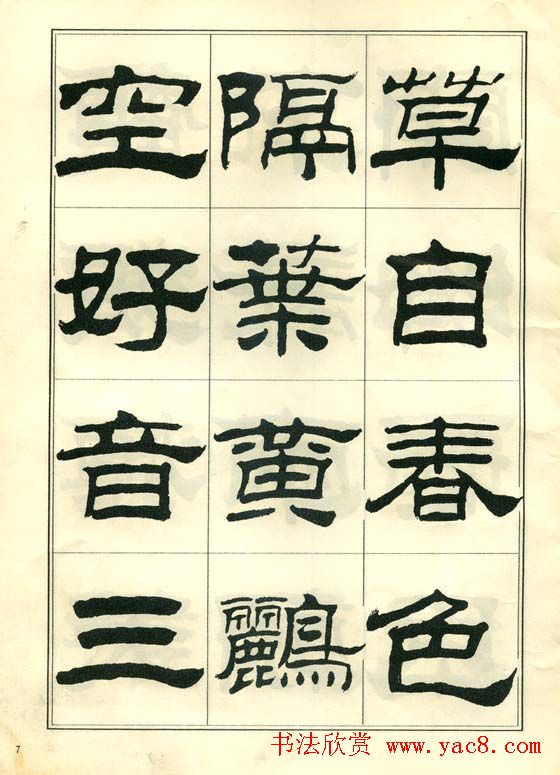 草自春色
隔葉黄鸝
空好音三
7
书法欣赏 www.yac8.com